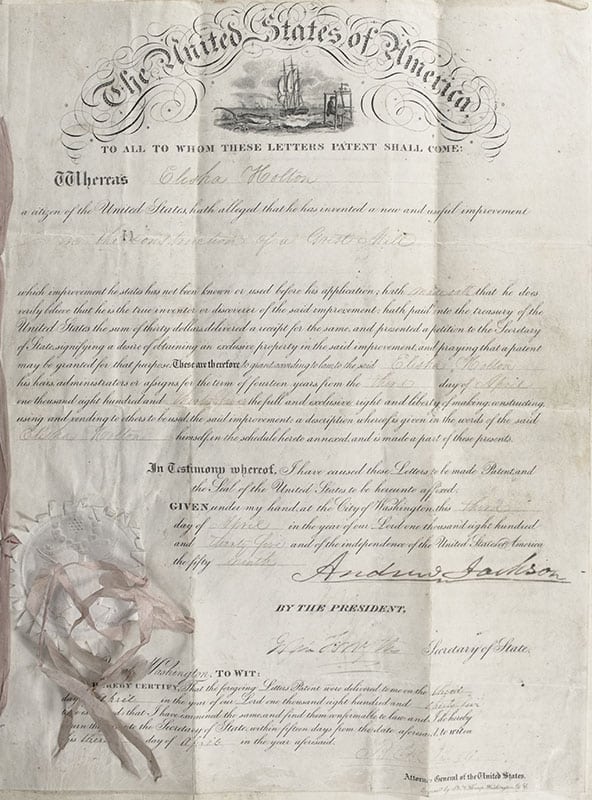 The United States of America,
TO ALL TO WHOM THESE LETTERS PATENT SHALL COME:
Whereas Elisha Holton
a citizen of the United States, hath alleged that he has invented a new and useful improvement
in the construction of a Grist Mill
which improvement he states has not been known or used before his application; hath made oath that he does
verily believe that he is the true inventor or discoverer of the said improvement; hath paid into the treasury of the
United States the sum of thirty dollars, delivered a receipt for the same, and presented a petition to the Secretary
of State, signifying a desire of obtaining an exclusive property in the said improvement, and praying that a patent
may be granted for that purpose. These are therefore to grant, according to law, to the said Elisha Holton
his heirs, administrators or assigns, for the term of fourteen years, from the third day of April
one thousand eight hundred and thirty five the full and exclusive right and liberty of making, constructing,
using and vending to others to be used, the said improvement; a description whereof is given in the words of the said
Elisha Holton himself, in the schedule hereto annexed, and is made a part of these presents.
In Testimony whereof, I have caused these Letters to be made Patent, and
the Seal of the United States to be hereunto affixed.
GIVEN under my hand, at the City of Washington, this third
day of April in the year of our Lord one thousand eight hundred
and thirty five and of the independence of the United States of America
the fifty ninth
Andrew Jackson
BY THE PRESIDENT,
Secretary of State.
Washington, TO WIT:
HEREBY CERTIFY, That the foregoing Letters Patent were delivered to me on the third
day April in the year of our Lord one thousand eight hundred and thirty five
that I have examined the same, and find them conformable to law and I do hereby
the Secretary of State, within fifteen days from the date aforesaid, to wit: on
this third day of April in the year aforesaid.
Attorney General of the United States.